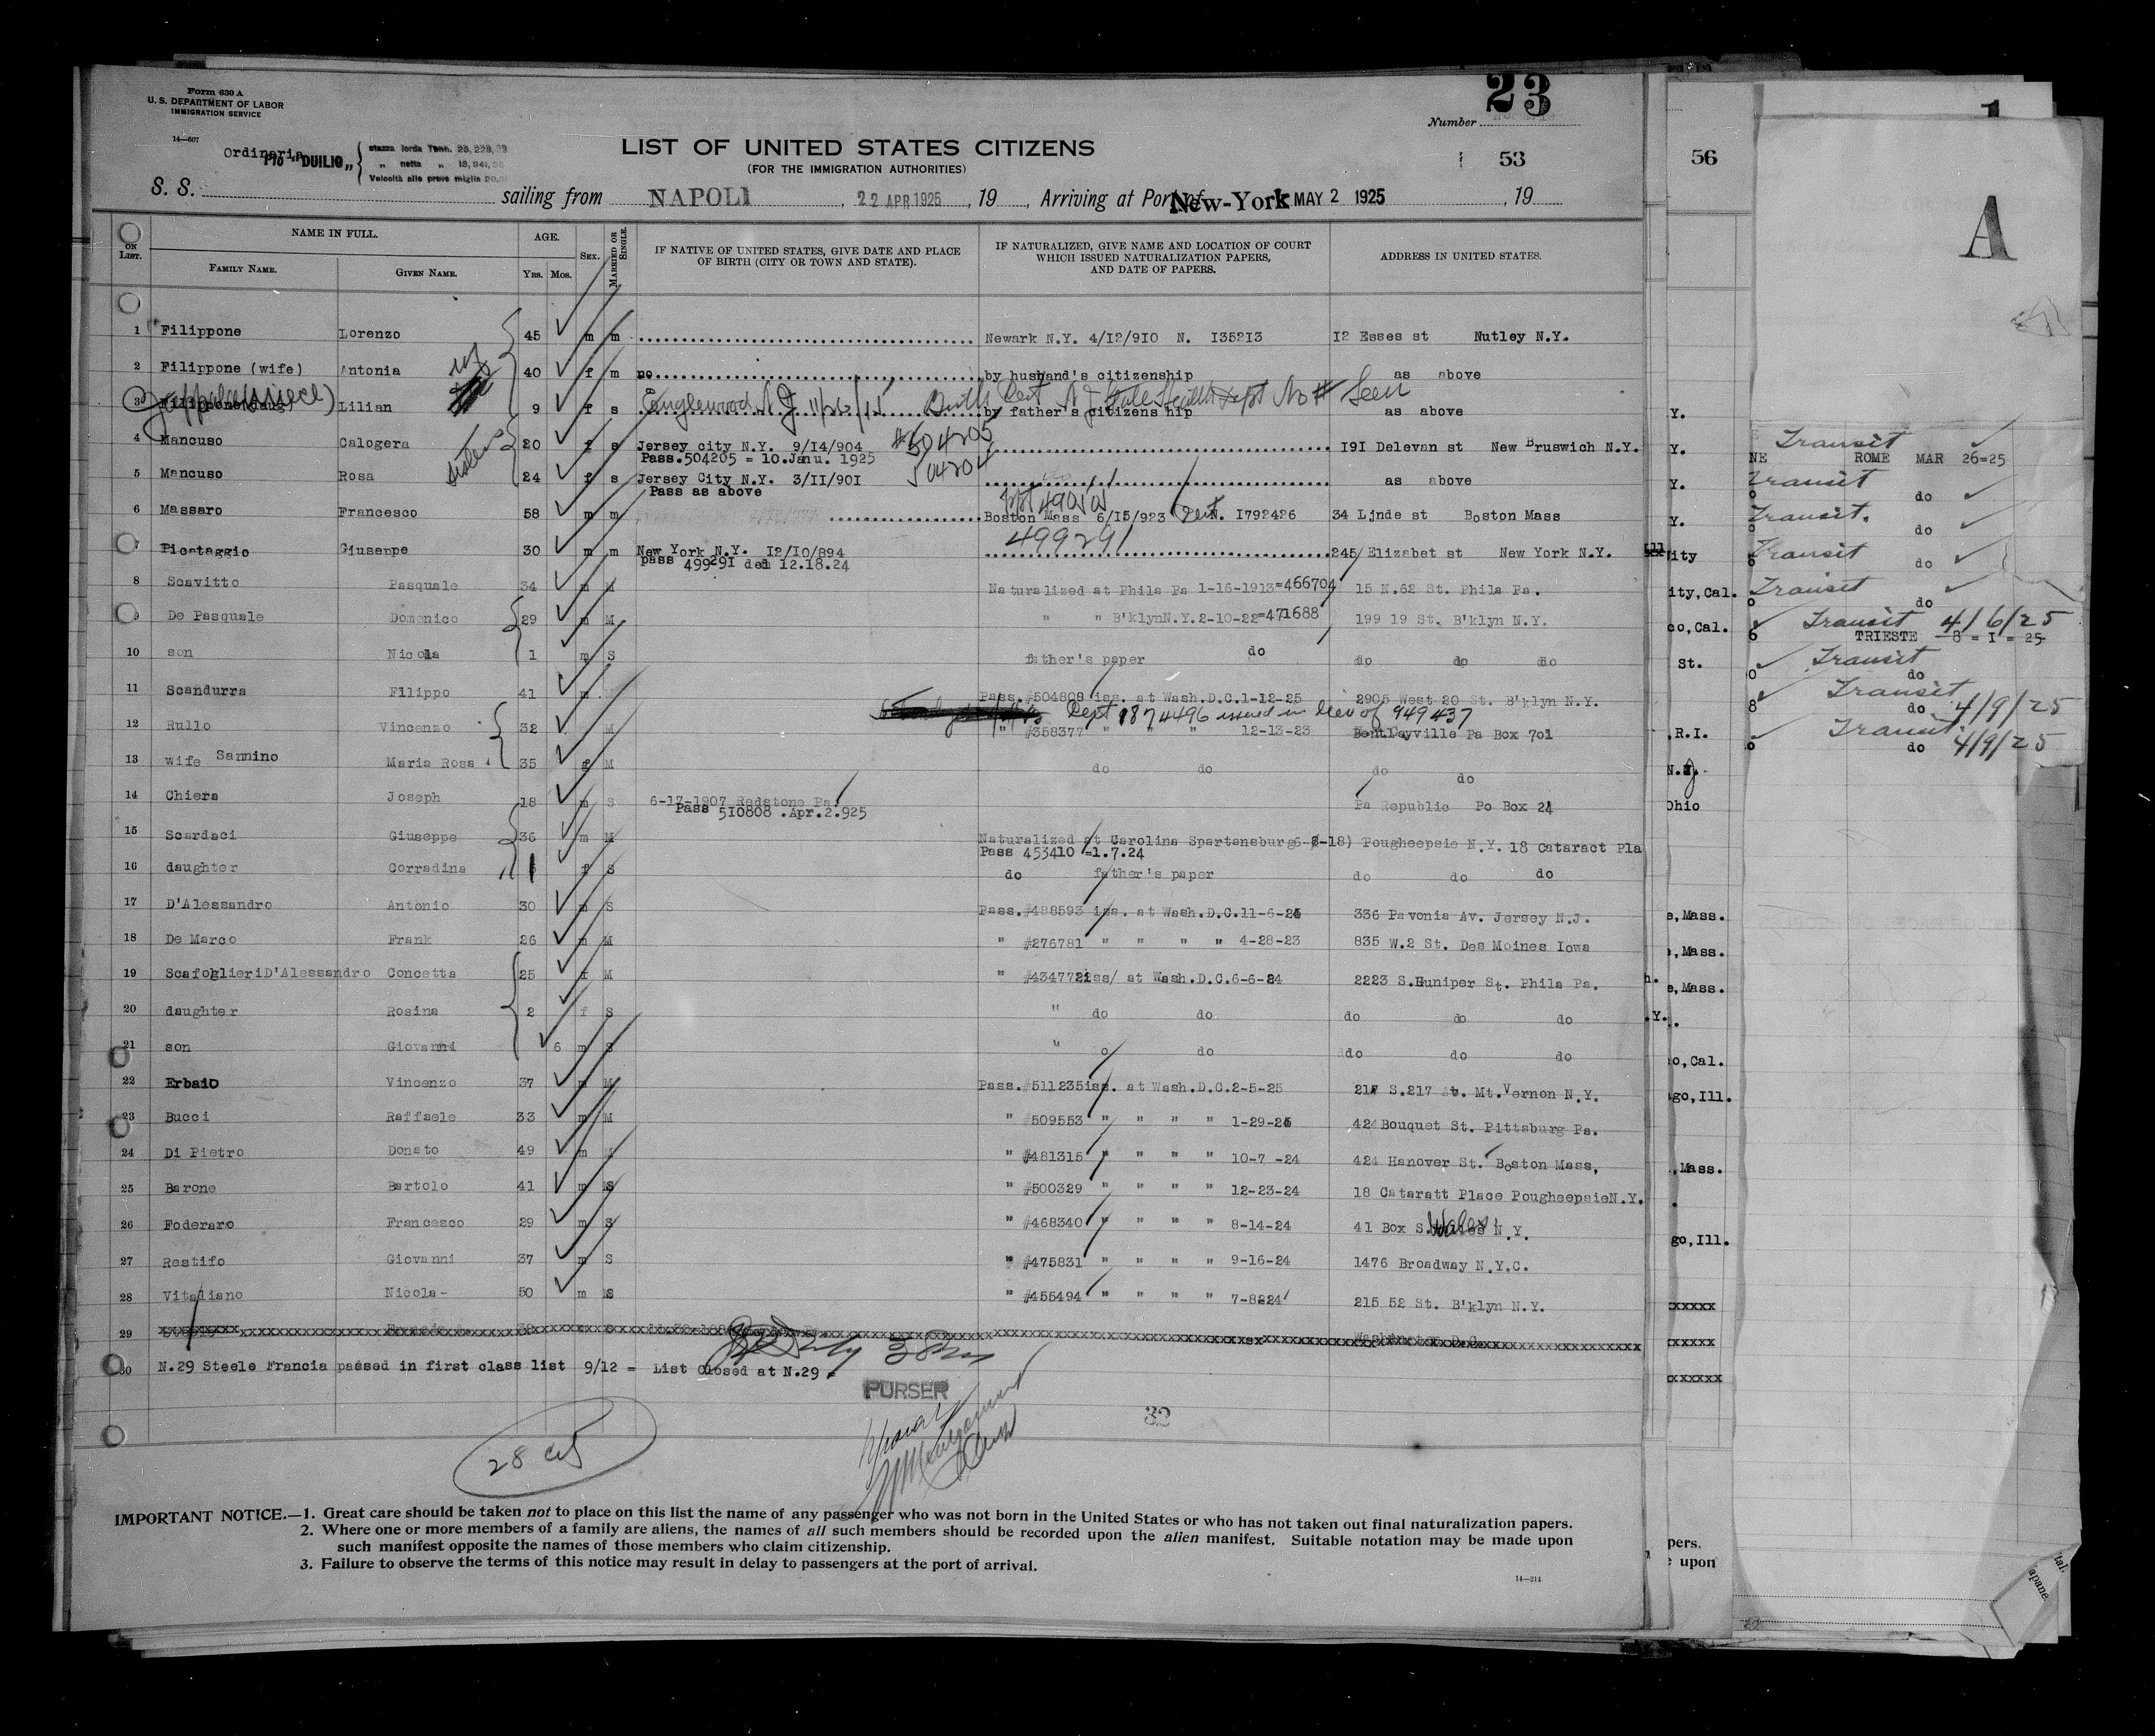 Form 630 A
U. S. DEPARTMENT OF LABOR
IMMIGRATION SERVICE
14—607
23
Number
53
LIST OF UNITED STATES CITIZENS
(FOR THE IMMIGRATION AUTHORITIES)
Ordinaria
P/fo "DUILIO„
stazza lorda Tonn. 23,228,
„ netta „ 13,941,
Velocità alle prove miglia
S. S. sailing from NAPOLI, 22 APR 1925, 19, Arriving at Port of New-York MAY 2 1925, 19
ON LIST. NAME IN FULL. AGE. SEX. MARRIED OR SINGLE. IF NATIVE OF UNITED STATES, GIVE DATE AND PLACE OF BIRTH (CITY OR TOWN AND STATE). IF NATURALIZED, GIVE NAME AND LOCATION OF COURT WHICH ISSUED NATURALIZATION PAPERS, AND DATE OF PAPERS. ADDRESS IN UNITED STATES.
FAMILY NAME. GIVEN NAME. YRS. MOS.
1 Filippone Lorenzo 45 m m Newark N.Y. 4/12/910 N. I35213 I2 Esses st Nutley N.Y.
2 Filippone (wife) Antonia 40 f m no by husband's citizenship as above
3 Filippone(daug) (niece) Lilian 9 f s Englewood N J 11/26/15 Birth Cert N J State Health Dept No # Seen by father's citizens hip as above
4 Mancuso Calogera 20 f s Jersey city N.Y. 9/14/904 #504205 I9I Delevan st New Bruswich N.Y.
Pass.504205 = 10.Janu. 1925
sisters
5 Mancuso Rosa 24 f s Jersey City N.Y. 3/II/90I 504204 as above
Pass as above
6 Massaro Francesco 58 m m Boston Mass 6/I5/923 Cert. N. I792426 34 Ljnde st Boston Mass
7 Picataggio Giuseppe 30 m m New York N.Y. I2/I0/894 499291 245 Elizabet st New York N.Y.
pass 49929I del 12.18.24
8 Scavitto Pasquale 34 m M Naturalized at Phila Pa 1-16-1913=466704 15 N.62 St. Phila Pa.
9 De Pasquale Domenico 29 m M " " B'klynN.Y.2-10-22=471688 199 19 St. B'klyn N.Y.
10 son Nicola 1 m S father's paper do do do do
11 Scandurra Filippo 41 m Pass.#504809 iss. at Wash.D.C.1-12-25 2905 West 20 St. B'klyn N.Y.
Cert 1874496 issued in lieu of 949437
12 Rullo Vincenzo 32 M " #358377 " " " 12-13-23 BentLeyville Pa Box 701
13 wife Sannino Maria Rosa 35 f M do do do do
14 Chiera Joseph 18 m S 6-17-1907 Redstone Pa. Pa Republic Po Box 24
Pass 510808 .Apr.2.925
15 Scardaci Giuseppe 36 m M Naturalized at Carolina Spartansburg6- -18) Pougheepsie N.Y. 18 Cataract Pla
Pass 453410 =1.7.24
16 daughter Corradina f S do father's paper do do do
17 D'Alessandro Antonio 30 m S Pass.#488593 iss. at Wash.D.C.11-6-24 336 Pavonia Av. Jersey N.J.
18 De Marco Frank 26 m M " #276781 " " " " 4-28-23 835 W.2 St. Des Moines Iowa
19 ScafoglieriD'Alessandro Concetta 25 f M " #434772iss/ at Wash.D.C.6-6-24 2223 S.Juniper St. Phila Pa.
20 daughter Rosina 2 f S " do do do do do
21 son Giovanni 6 m S " do do do do do
22 Erbaio Vincenzo 37 m M Pass.#511235iss. at Wash.D.C.2-5-25 217 S.217 St. Mt.Vernon N.Y.
23 Bucci Raffaele 33 m M " #509553 " " " " 1-29-25 424 Bouquet St. Pittsburg Pa.
24 Di Pietro Donato 49 m M " #481315 " " " " 10-7 -24 424 Hanover St. Boston Mass,
25 Barone Bartolo 41 m S " #500329 " " " " 12-23-24 18 Cataratt Place PougheepsieN.Y.
26 Foderaro Francesco 29 m S " #468340 " " " " 8-14-24 41 Box S. Wales N.Y.
27 Restifo Giovanni 37 m S " #475831 " " " " 9-16-24 1476 Broadway N.Y.C.
28 Vitaliano Nicola- 50 m S " #455494 " " " " 7-8-24 215 52 St. B'klyn N.Y.
29 Washington D.C.
30 N.29 Steele Francia passed in first class list 9/12 = List Closed at N.29 =
PURSER
32
28
IMPORTANT NOTICE.—1. Great care should be taken not to place on this list the name of any passenger who was not born in the United States or who has not taken out final naturalization papers.
2. Where one or more members of a family are aliens, the names of all such members should be recorded upon the alien manifest. Suitable notation may be made upon
such manifest opposite the names of those members who claim citizenship.
3. Failure to observe the terms of this notice may result in delay to passengers at the port of arrival.
14—214
56
Y.
Y.
Y.
Y.
ity
ity,Cal.
co,Cal.
St.
,R.I.
N.J.
Ohio
e,Mass.
,Mass.
e,Mass.
o,Cal.
ago,Ill.
,Mass.
go,Ill.
xxxxx
xxxxx
xxxxxx
pers.
upon
A
Transit
NE ROME MAR 26=25
Transit
do
Transit.
do
Transit
do
Transit
do
Transit 4/6/25
TRIESTE 8 = I = 25
Transit
do
Transit
do 4/9/25
Transit
do 4/9/25
tal.
apane